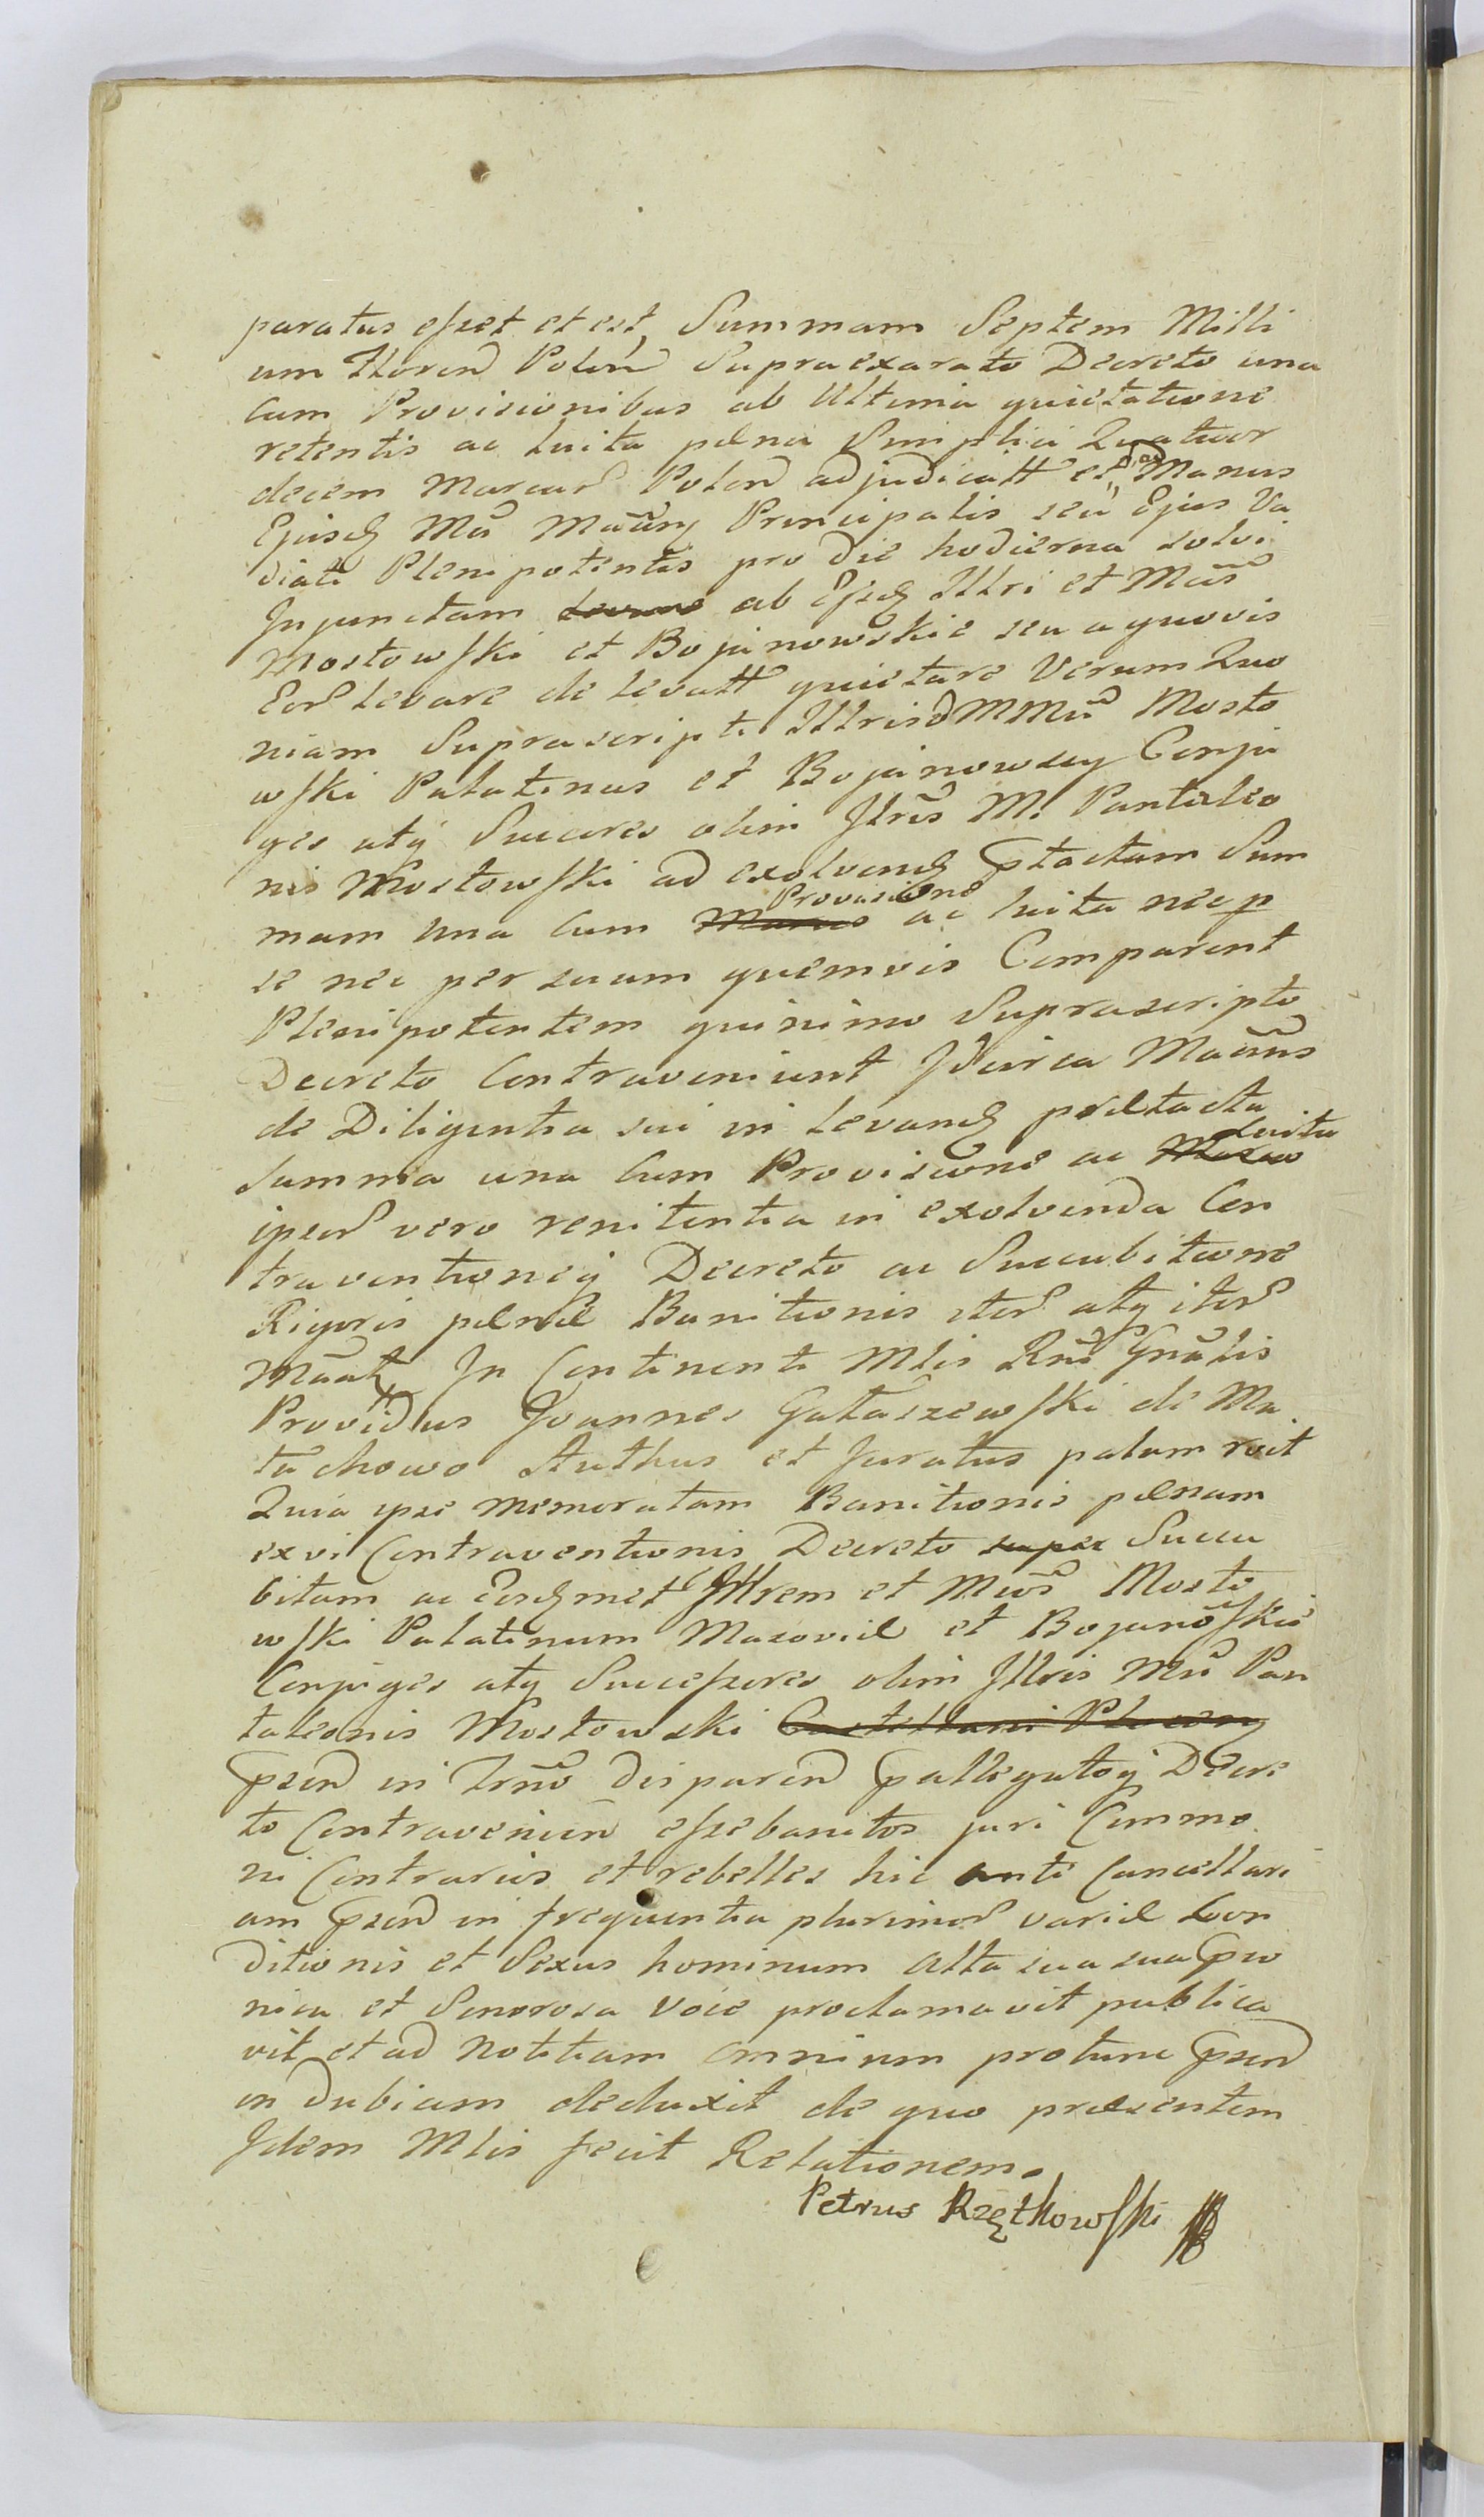 paratus esset et est, Summam Septem Milli
um Floren Polon Supraexarato Decreto una
cum Provisionibus ab Ultima quietatione
retentis ac luita pæna Simplici Quatuor
decem Marcar Polon adjudicatt et ad Manus
Ejusd Mci Principalis seu Ejus Va
diati Plenipotentis pro die hodierna solvi
Injunctam ab Ijsd Illri et Mcis
Mostowski et Bojanowskie seu a quovis
Eor levare de levatt quietare Verum Quo
niam Suprascripti Illris Mosto
wski Palatinus et Bojanowscy Conju
ges atq Succres olim Illris M. Pantaleo
nis Mostowski ad exolvend ptactam Sum
mam una cum Provisione ac luita nec p
se nec per suum quemvis Comparent
Plenipotentem quinimo Suprascripto
Decreto Contraveniunt Idcirca
de Diligentia sui in levand prætacta
summa una cum Provisione ac Luita
ipsor vero renitentia in exolvenda Con
traventioneq Decreto ac Succubitione
Rigoris pænæ Banitionis iter atq iter
In Continenti Mlis Rni Gnalis
Providus Joannes Gałaszewski de Ma
Authus et Juratus palam rcit
Quia ipse memoratam Banitionis pænam
ex vi Contraventionis Decreto super Succu
bitam ac Eosdmet Illrem et Mcos Mosto
wski Palatinum Masoviæ et Bojanoskie
Conjuges atq Successores olim Illris Mci Pan
taleonis Mostowski Castellani
psen in Trno disparen pallegatoq Decre
to Contravenien esse banitos juri Commu
ni Contrarios et rebelles hic ante Cancellari
am psen in frequentia plurimor variæ Con
ditionis et Sexus hominum alta sua
nica et Sonorosa voce proclamavit publica
vit et ad notitiam omnium protunc psen
in dubiam deduxit de quo præsentem
Idem Mlis fecit Relationem.
Petrus Rzętkowski